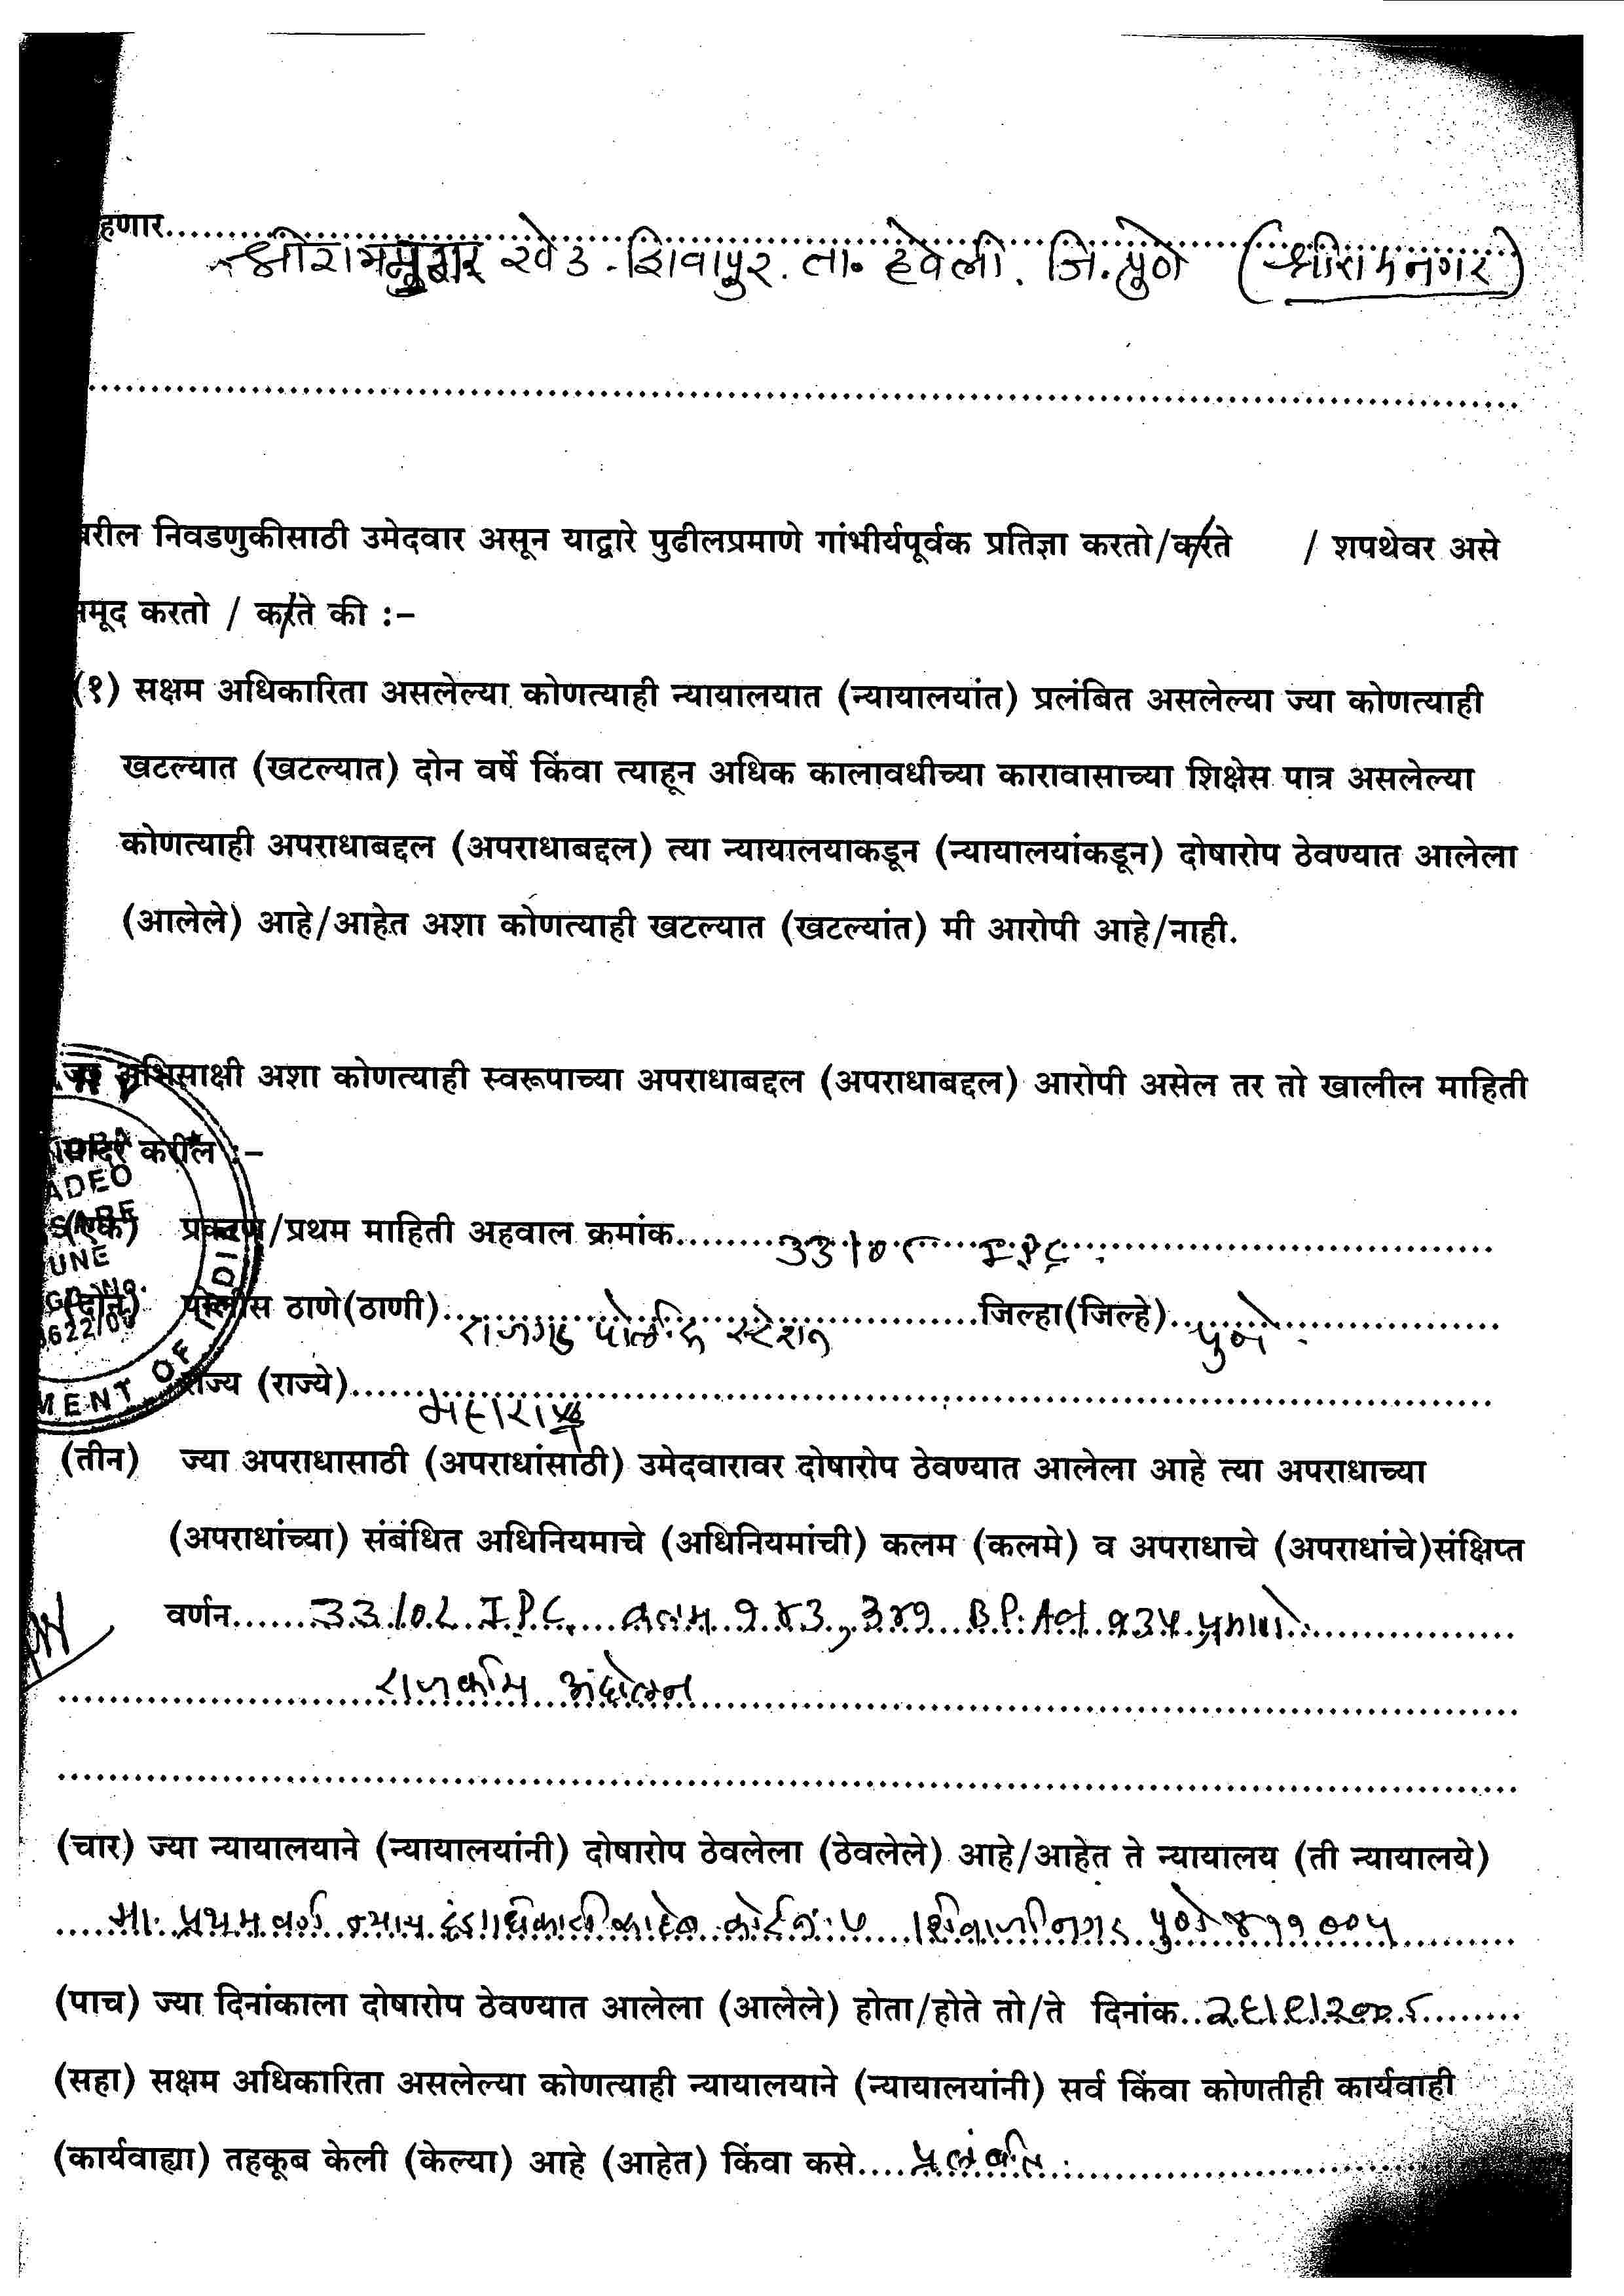 हणार
खेड - शिवापुर. ता. हवेली. जि. पुणे (श्रीरामनगर)
वरील निवडणुकीसाठी उमेदवार असून याद्वारे पुढीलप्रमाणे गांभीर्यपूर्वक प्रतिज्ञा करतो/करते / शपथेवर असे
नमूद करतो / करते की :–
(१) सक्षम अधिकारिता असलेल्या कोणत्याही न्यायालयात (न्यायालयांत) प्रलंबित असलेल्या ज्या कोणत्याही
खटल्यात (खटल्यात) दोन वर्षे किंवा त्याहून अधिक कालावधीच्या कारावासाच्या शिक्षेस पात्र असलेल्या
कोणत्याही अपराधाबद्दल (अपराधाबद्दल) त्या न्यायालयाकडून (न्यायालयांकडून) दोषारोप ठेवण्यात आलेला
(आलेले) आहे/आहेत अशा कोणत्याही खटल्यात (खटल्यांत) मी आरोपी आहे/नाही.
जर अभिसाक्षी अशा कोणत्याही स्वरूपाच्या अपराधाबद्दल (अपराधाबद्दल) आरोपी असेल तर तो खालील माहिती
सादर करील :–
ADEO
(एक) प्रकरण/प्रथम माहिती अहवाल क्रमांक 33/08 IPC.
UNE
(दोन) पोलीस ठाणे(ठाणी) राजगड पोलीस स्टेशन जिल्हा(जिल्हे) पुणे.
MENT OF INDIA
राज्य (राज्ये) महाराष्ट्र
(तीन) ज्या अपराधासाठी (अपराधांसाठी) उमेदवारावर दोषारोप ठेवण्यात आलेला आहे त्या अपराधाच्या
(अपराधांच्या) संबंधित अधिनियमाचे (अधिनियमांची) कलम (कलमे) व अपराधाचे (अपराधांचे)संक्षिप्त
वर्णन 33/08 I.P.C. कलम १४३, ३४१ B.P. Act १३५ प्रमाणे.
अंदोलन
(चार) ज्या न्यायालयाने (न्यायालयांनी) दोषारोप ठेवलेला (ठेवलेले) आहे/आहेत ते न्यायालय (ती न्यायालये)
मा. प्रथम वर्ग न्याय दंडाधिकारी कोर्ट नं. ५ शिवाजीनगर पुणे ४११००५
(पाच) ज्या दिनांकाला दोषारोप ठेवण्यात आलेला (आलेले) होता/होते तो/ते दिनांक २६/९/२००८
(सहा) सक्षम अधिकारिता असलेल्या कोणत्याही न्यायालयाने (न्यायालयांनी) सर्व किंवा कोणतीही कार्यवाही
(कार्यवाह्या) तहकूब केली (केल्या) आहे (आहेत) किंवा कसे प्रलंबीत.